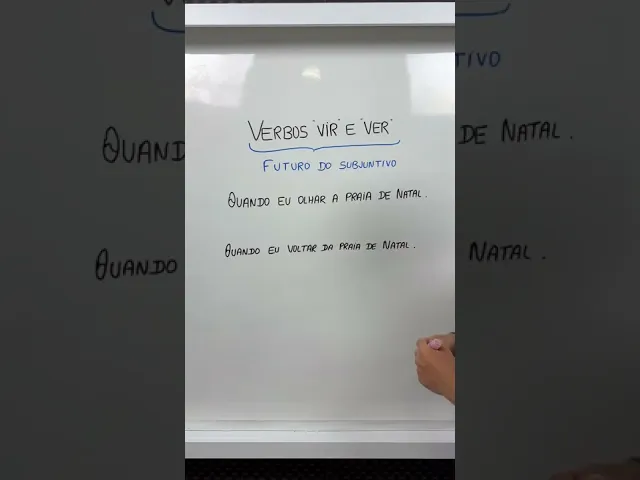 VERBOS "VIR" E "VER"
FUTURO DO SUBJUNTIVO
QUANDO EU OLHAR A PRAIA DE NATAL.
QUANDO EU VOLTAR DA PRAIA DE NATAL.